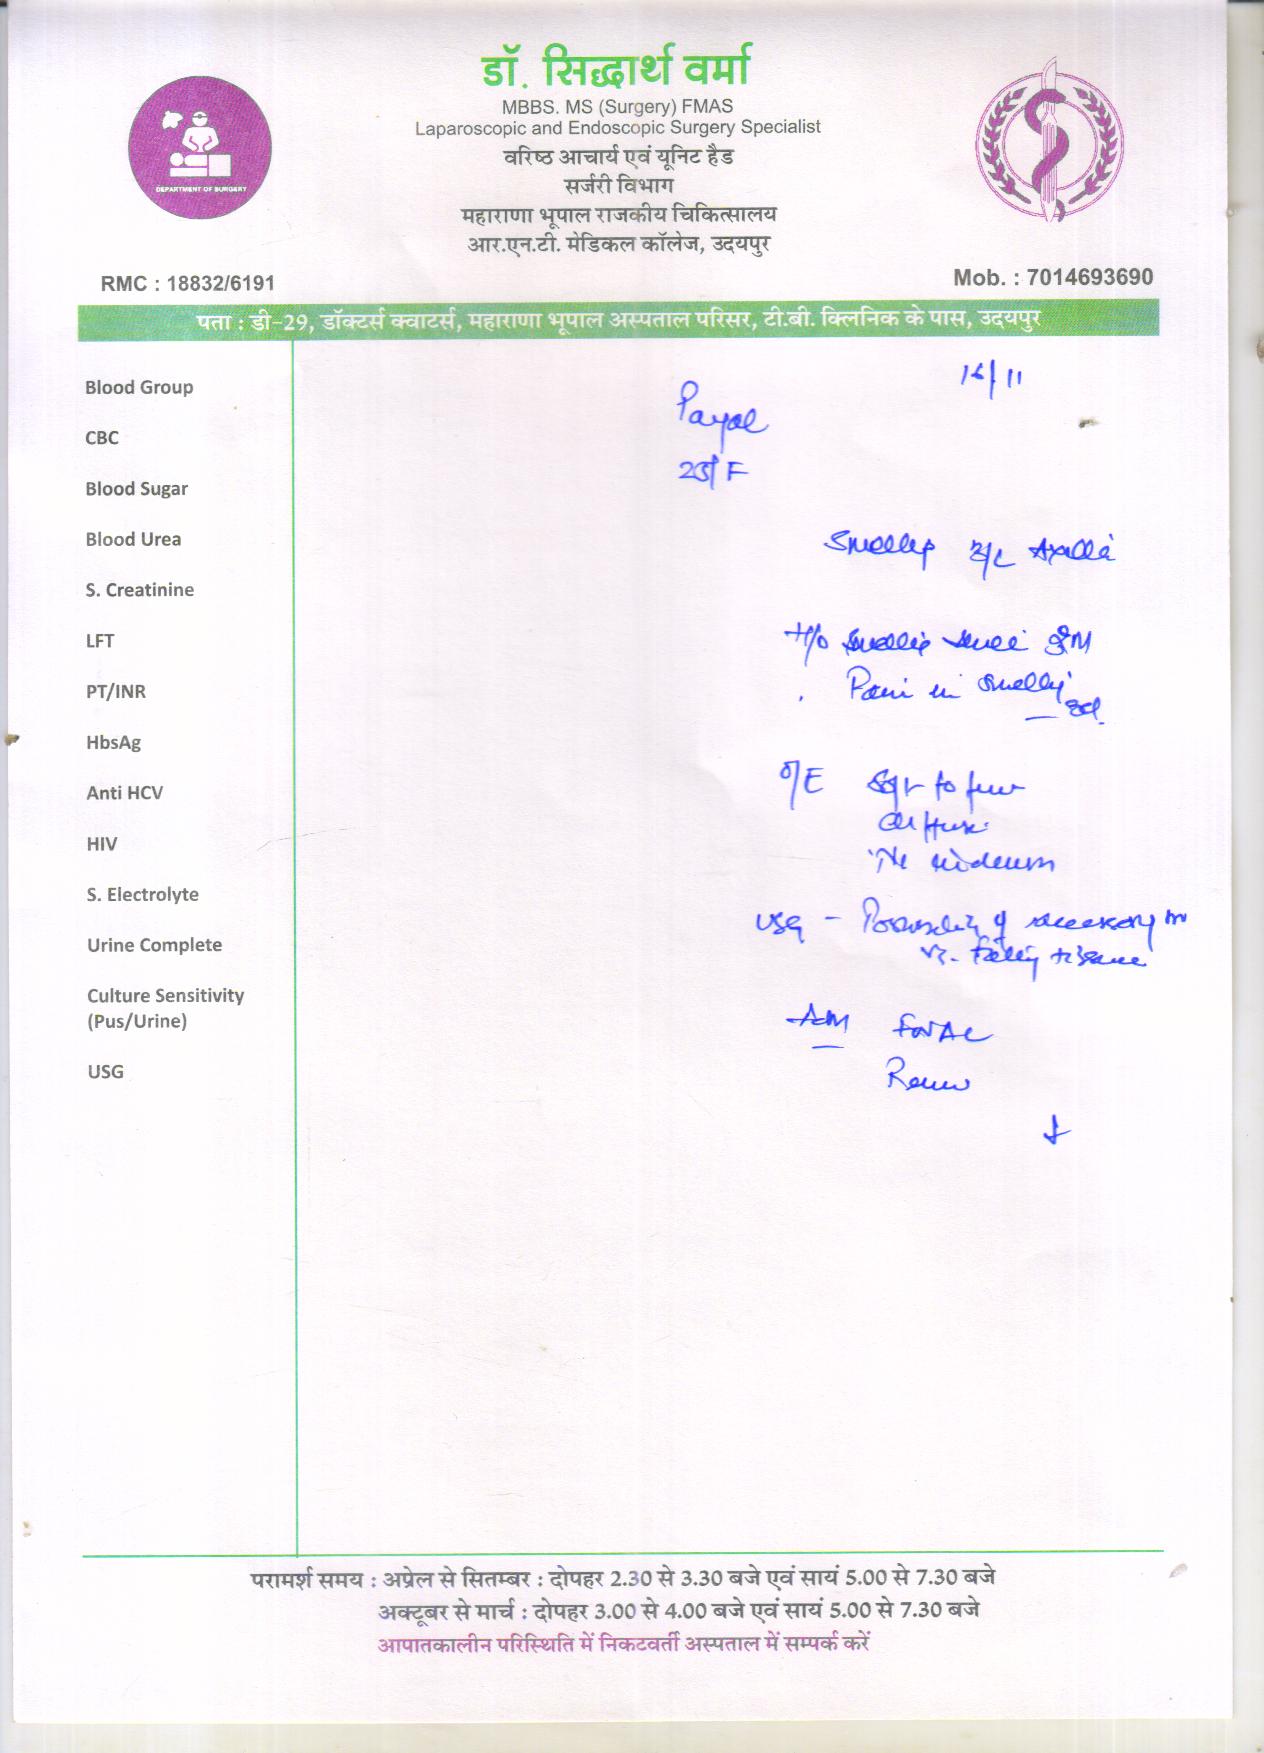 डॉ. सिद्धार्थ वर्मा
MBBS. MS (Surgery) FMAS
Laparoscopic and Endoscopic Surgery Specialist
वरिष्ठ आचार्य एवं यूनिट हैड
सर्जरी विभाग
महाराणा भूपाल राजकीय चिकित्सालय
आर.एन.टी. मेडिकल कॉलेज, उदयपुर
DEPARTMENT OF SURGERY
RMC : 18832/6191
Mob. : 7014693690
पता : डी-29, डॉक्टर्स क्वाटर्स, महाराणा भूपाल अस्पताल परिसर, टी.बी. क्लिनिक के पास, उदयपुर
Blood Group
CBC
Blood Sugar
Blood Urea
S. Creatinine
LFT
PT/INR
HbsAg
Anti HCV
HIV
S. Electrolyte
Urine Complete
Culture Sensitivity
(Pus/Urine)
USG
Payal
/F
Swelling Axilla
H/o Swelling since
Pain in Swelling
O/E to firm
diffuse
USG - Possibility of accessory
fatty tissue
Adv FNAC
Review
परामर्श समय : अप्रेल से सितम्बर : दोपहर 2.30 से 3.30 बजे एवं सायं 5.00 से 7.30 बजे
अक्टूबर से मार्च : दोपहर 3.00 से 4.00 बजे एवं सायं 5.00 से 7.30 बजे
आपातकालीन परिस्थिति में निकटवर्ती अस्पताल में सम्पर्क करें